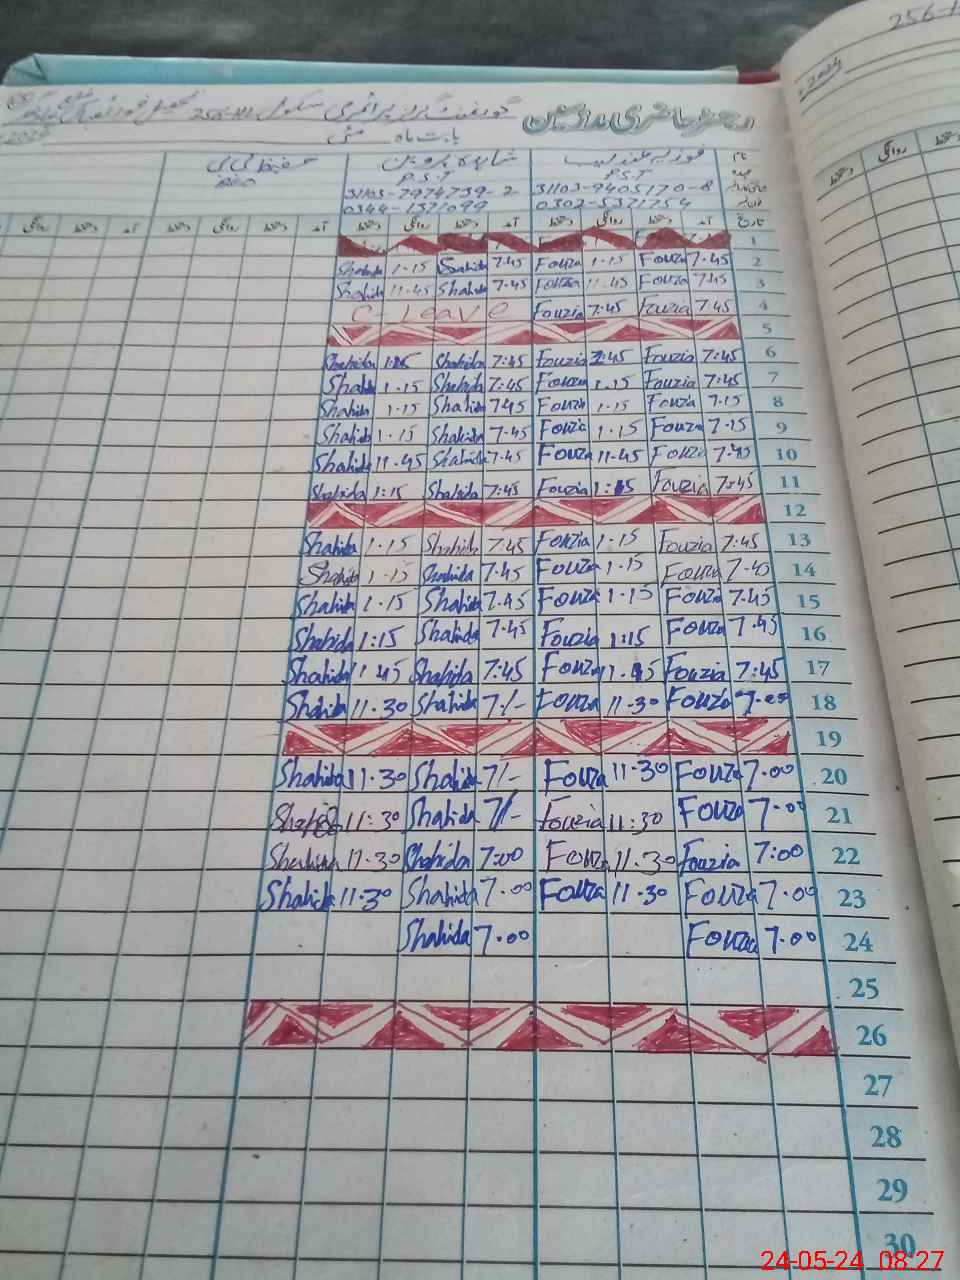 256-H
2024
رجسٹر حاضری مدرسین
گورنمنٹ گرلز پرائمری سکول 256-H
بابت ماہ مئی
نام فوزیہ عندلیب شاہدہ پروین
عہدہ P.S.T P.S.T
31103-9405170-8 31103-7974739-2
0302-5321754 0344-1321099
تاریخ آمد دستخط روانگی دستخط آمد دستخط روانگی دستخط آمد دستخط روانگی دستخط آمد دستخط روانگی
1
Shahida 1.15 Shahida 7.45 Fouzia 1.15 Fouzia 7.45 2
Shahida 11.45 Shahida 7.45 Fouzia 11.45 Fouzia 7.45 3
C-Leave Fouzia 7:45 Fouzia 7.45 4
5
Shahida 1:15 Shahida 7:45 Fouzia 7:45 Fouzia 7:45 6
Shahida 1.15 Shahida 7:45 Fouzia 1.15 Fouzia 7:45 7
Shahida 1.15 Shahida 7.45 Fouzia 1.15 Fouzia 7.15 8
Shahida 1.15 Shahida 7.45 Fouzia 1.15 Fouzia 7.15 9
Shahida 11.45 Shahida 7.45 Fouzia 11.45 Fouzia 7.45 10
Shahida 1:15 Shahida 7:45 Fouzia 1:15 Fouzia 7:45 11
12
Shahida 1.15 Shahida 7:45 Fouzia 1.15 Fouzia 7:45 13
Shahida 1.15 Shahida 7.45 Fouzia 1.15 Fouzia 7.45 14
Shahida 1.15 Shahida 7.45 Fouzia 1.15 Fouzia 7.45 15
Shahida 1:15 Shahida 7.45 Fouzia 1:15 Fouzia 7.45 16
Shahida 11.45 Shahida 7:45 Fouzia 11.45 Fouzia 7:45 17
Shahida 11.30 Shahida 7/- Fouzia 11.30 Fouzia 7.00 18
19
Shahida 11.30 Shahida 7/- Fouzia 11.30 Fouzia 7.00 20
Shahida 11:30 Shahida 7/- Fouzia 11:30 Fouzia 7.00 21
Shahida 11.30 Shahida 7:00 Fouzia 11.30 Fouzia 7:00 22
Shahida 11.30 Shahida 7.00 Fouzia 11.30 Fouzia 7.00 23
Shahida 7.00 Fouzia 7.00 24
25
26
27
28
29
30
24-05-24 08:27